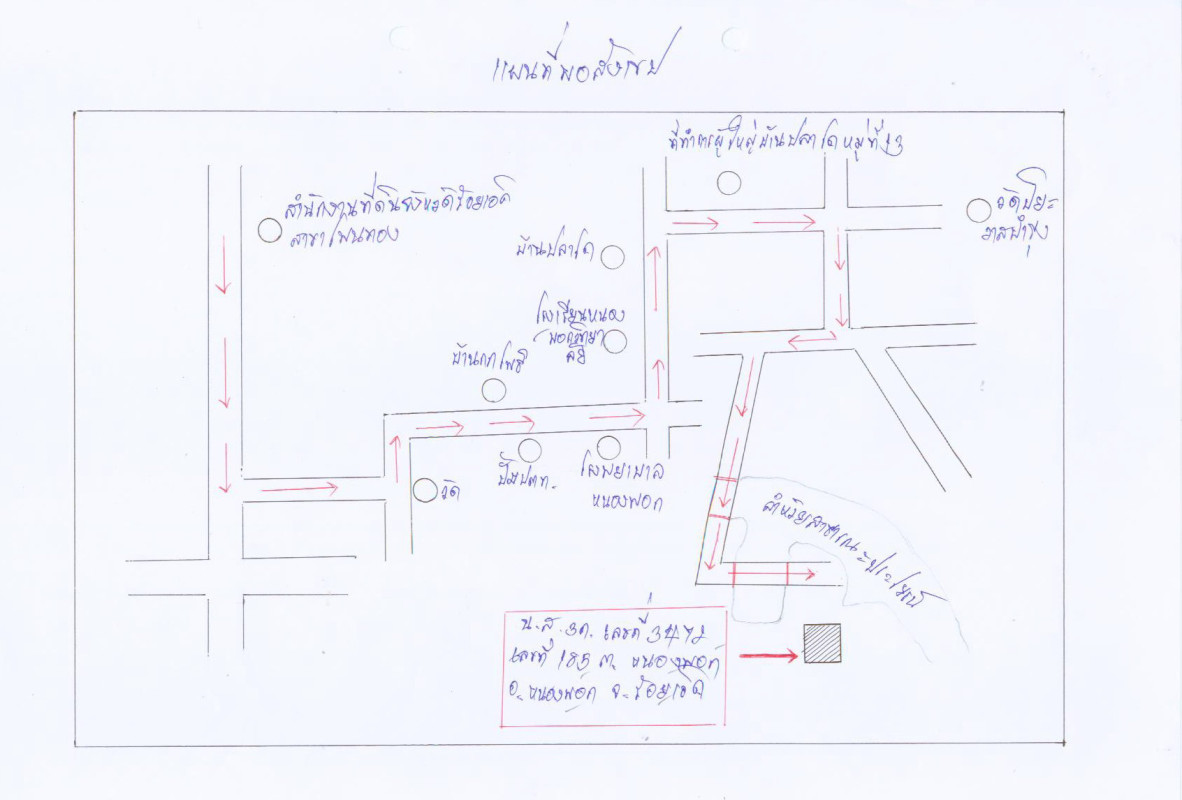 แผนที่พอสังเขป
ที่ทำการผู้ใหญ่บ้านปลาโด หมู่ที่ 13
สำนักงานที่ดินจังหวัดร้อยเอ็ด
สาขาโพนทอง
วัดปิยะ
บ้านปลาโด
โรงเรียนหนอง
พอกวิทยา
ลัย
บ้านกกโพธิ์
วัด
ปั๊มปตท.
โรงพยาบาล
หนองพอก
ลำห้วยสาธารณะประโยชน์
น.ส. 3ก. เลขที่ 3472
เลขที่ 185 ต. หนองพอก
อ. หนองพอก จ. ร้อยเอ็ด